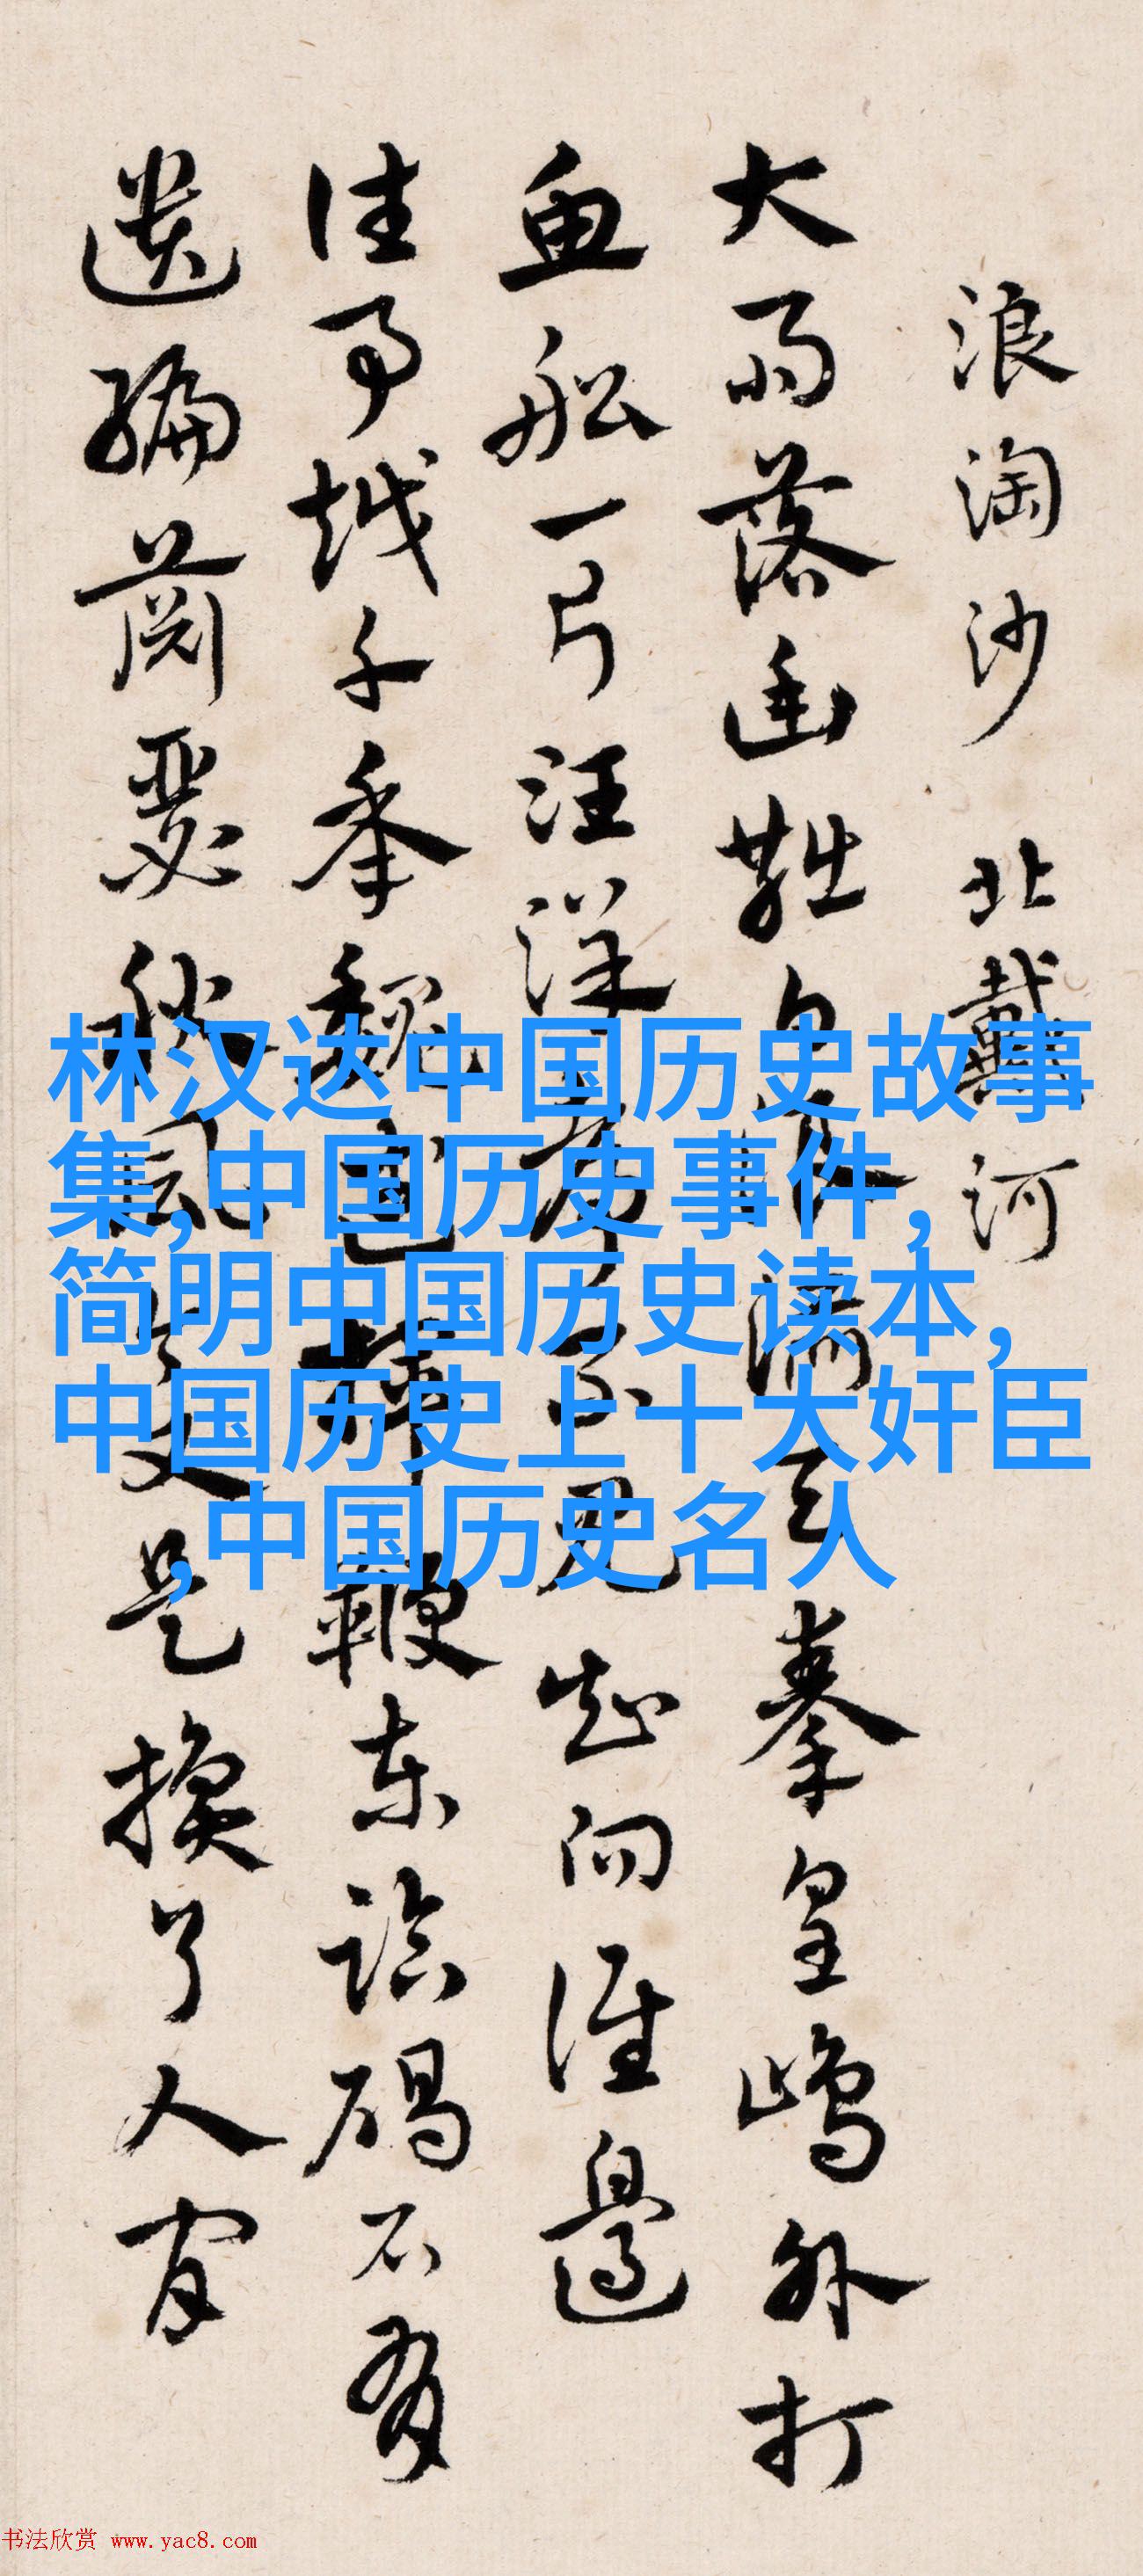 浪淘沙 北戴河
大雨落幽燕白浪滔天秦皇嶋外打
魚船一片汪洋都不見知向誰邊
往事越千年魏武揮鞭東臨碣石有
遺編蕭瑟秋風今又是換了人間
林汉达中国历史故事
集,中国历史事件,
简明中国历史读本,
中国历史上十大奸臣
,中国历史名人
书法欣赏 www.yac8.com